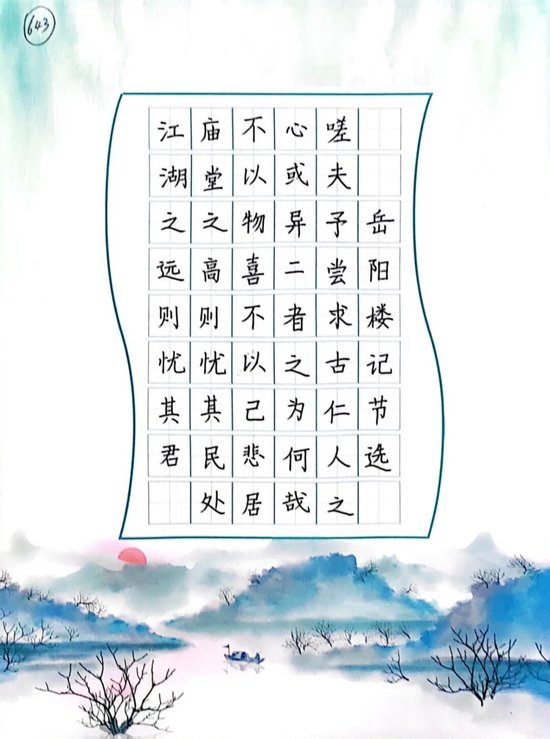 643
岳阳楼记节选
嗟夫予尝求古仁人之
心或异二者之为何哉
不以物喜不以己悲居
庙堂之高则忧其民处
江湖之远则忧其君